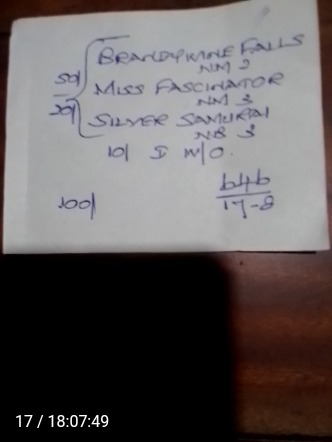 50/ BRANDYWINE FALLS
NM 2
MISS FASCINATOR
20/ NM 3
SILVER SAMURAI
NB 3
10/ I W/O.
646
100/ 17-8
17 / 18:07:49